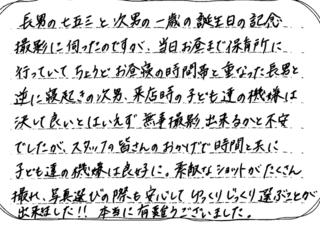 長男の七五三と次男の一歳の誕生日の記念
撮影に伺ったのですが、当日お昼まで保育所に
行っていてちょうどお昼寝の時間帯と重なった長男と
逆に寝起きの次男、来店時の子ども達の機嫌は
決して良いとはいえず無事撮影出来るかと不安
でしたが、スタッフの皆さんのおかげで時間と共に
子ども達の機嫌は良好に。素敵なショットがたくさん
撮れ、写真選びの際も安心してゆっくりじっくり選ぶことが
出来ました!! 本当に有難うございました。